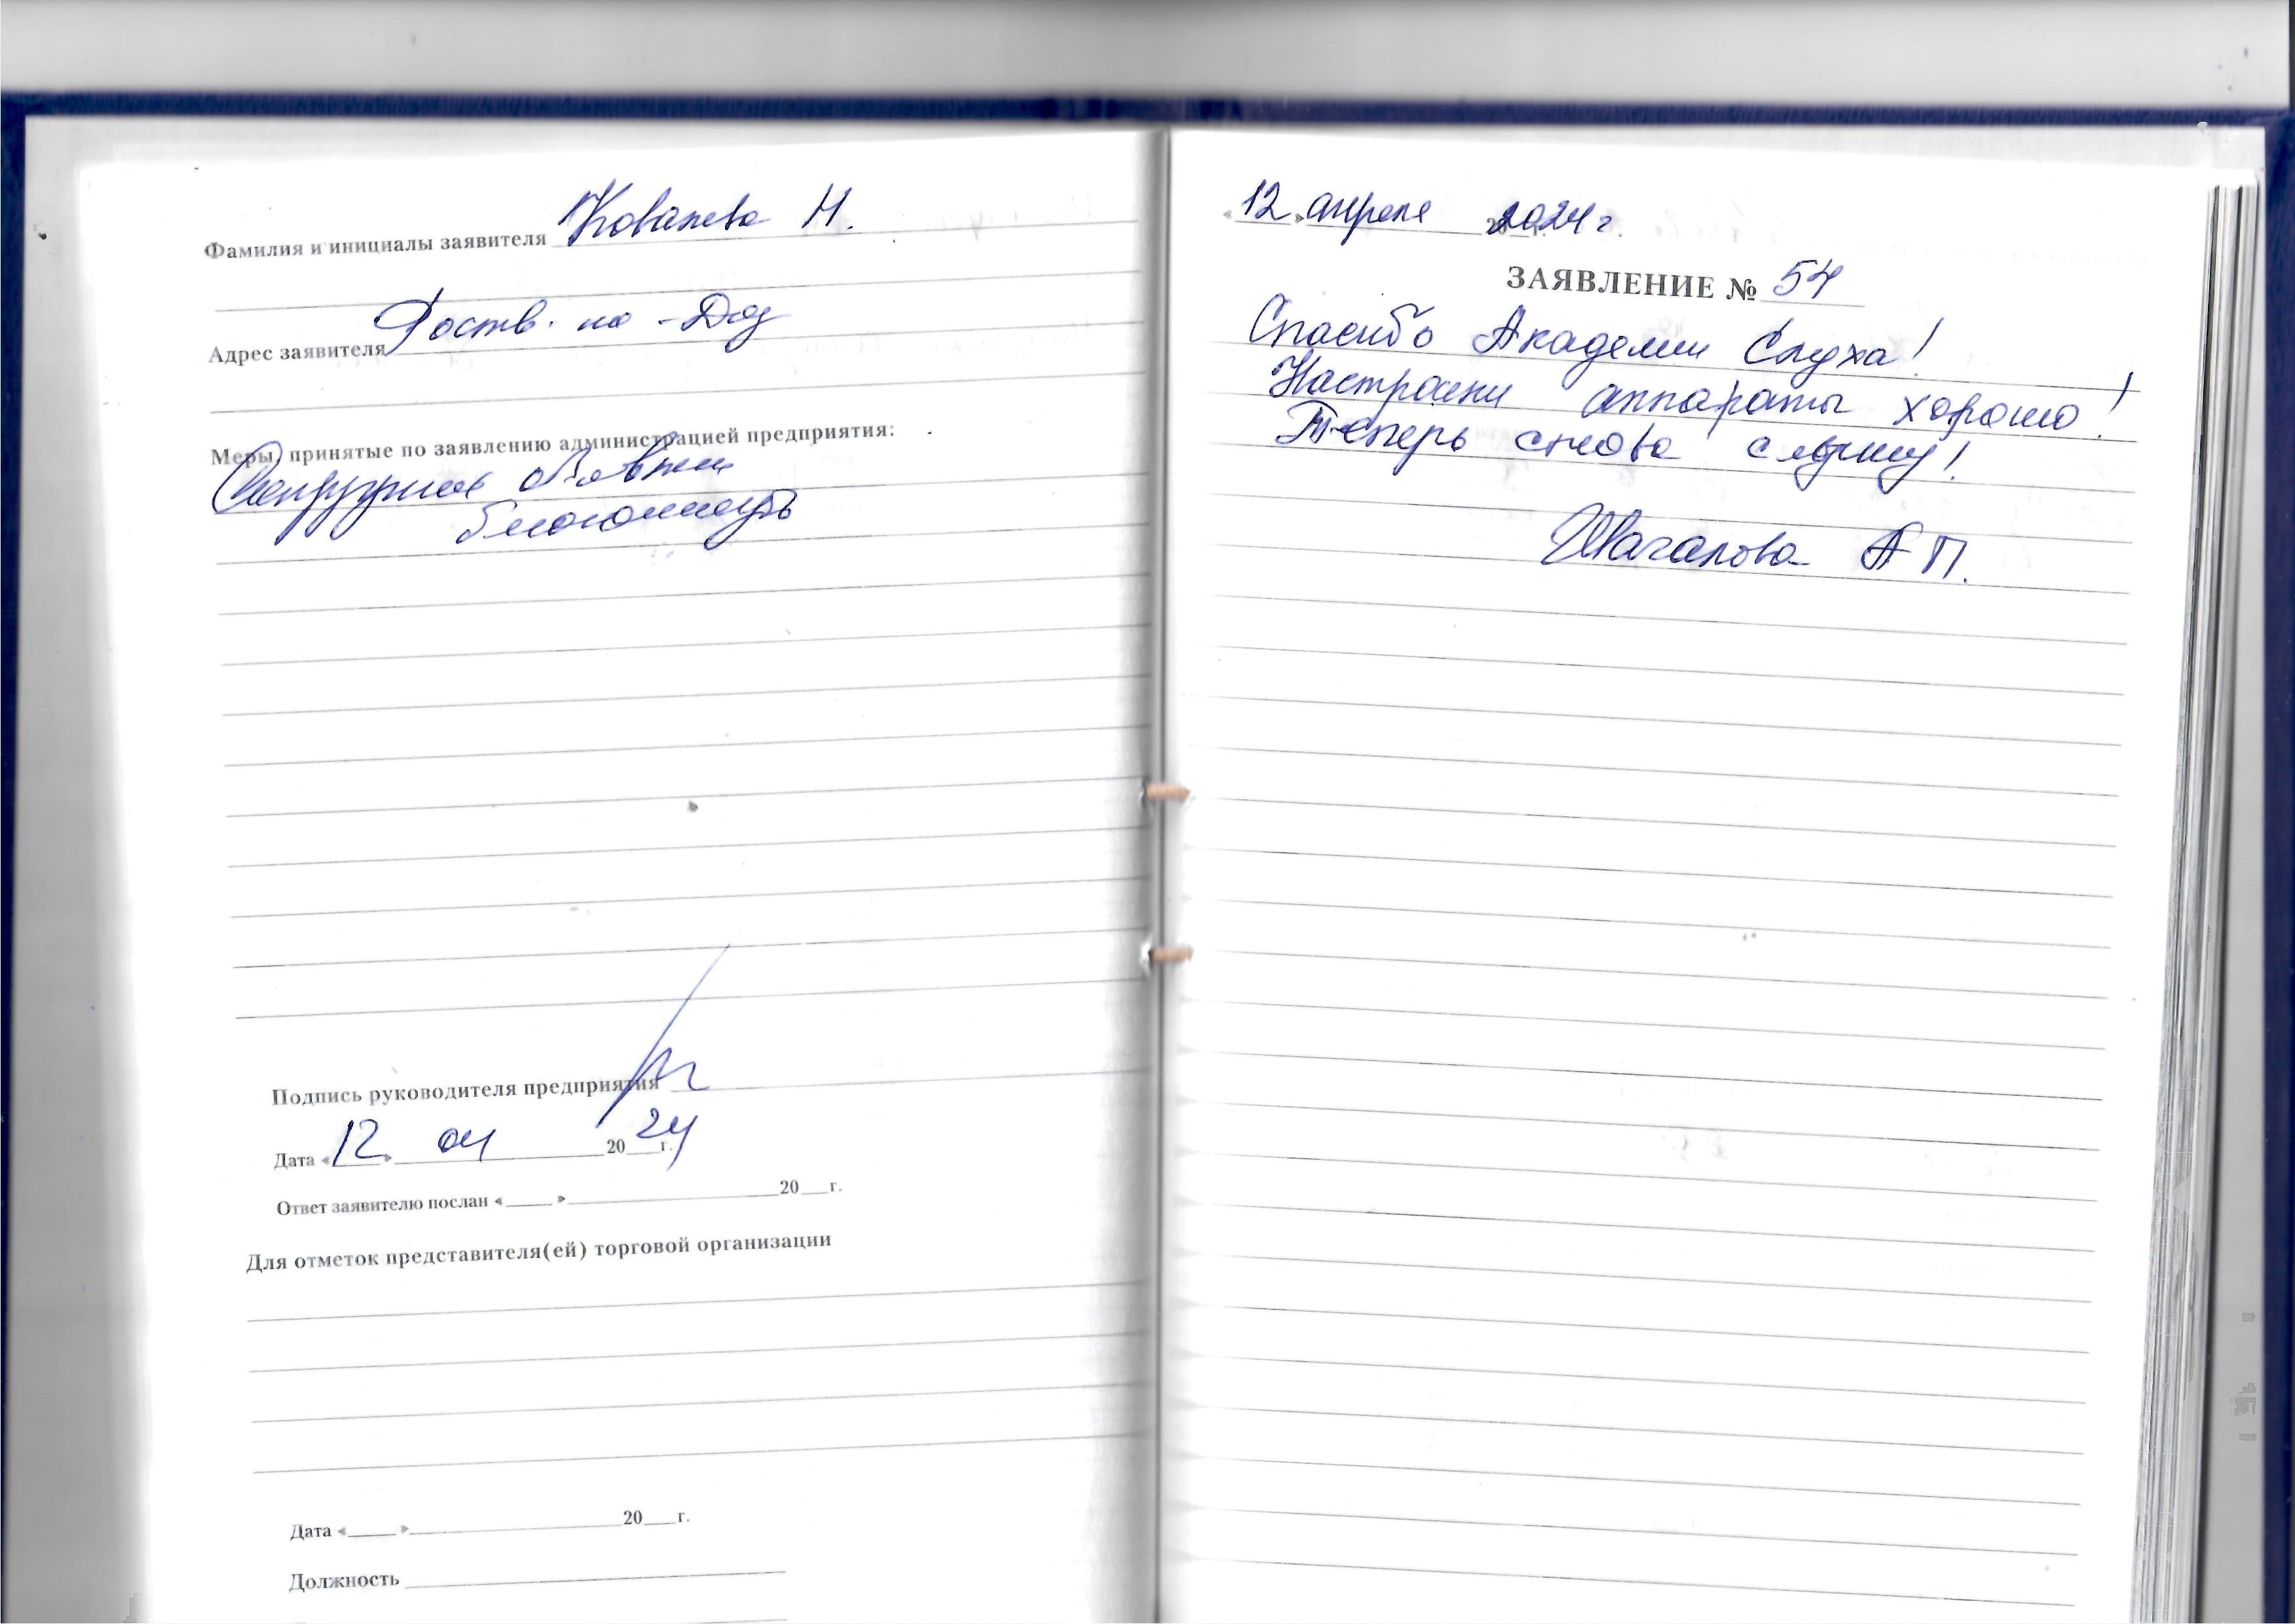 Фамилия и инициалы заявителя Ковалева Н.
Адрес заявителя Роств. на-Дону
Меры, принятые по заявлению администрацией предприятия:
Сотруднику объявлена
благодарность
Подпись руководителя предприятия
Дата «12» 04 2024 г.
Ответ заявителю послан «____» ____ 20__ г.
Для отметок представителя(ей) торговой организации
Дата «____» ____ 20__ г.
Должность
«12» апреля 2024 г.
ЗАЯВЛЕНИЕ № 54
Спасибо Академии Слуха!
Настроили аппараты хорошо!
Теперь снова слышу!
Шагалова А П.